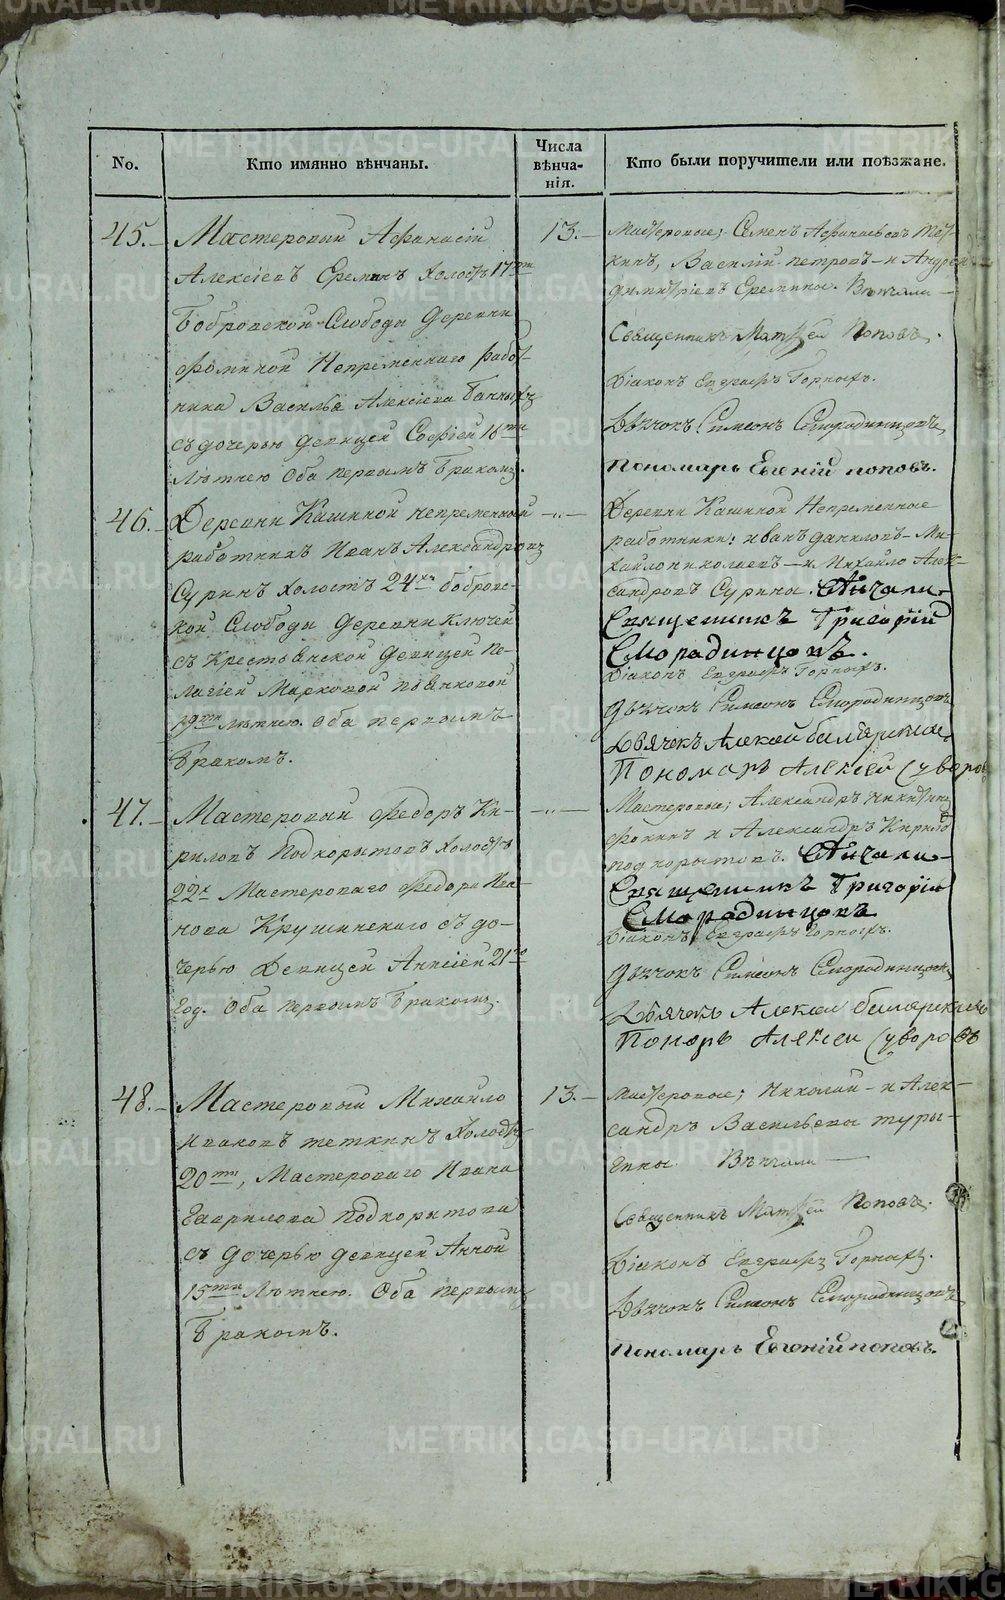 No.
Кто имянно вѣнчаны.
Числа
вѣнча-
нія.
Кто были поручители или поѣзжане.
45.
Мастеровый Афанасій
Алексіевъ Ереминъ холостъ 17ти
Бобровской Слободы Деревни
Фоминой Непременнаго работ-
ника Василья Алексіева Банныхъ
съ дочерью девицей Софіей 18ти
Лѣтнею Оба первымъ Бракомъ.
13.
Мастеровые; Семенъ Афанасьевъ Тет-
кинъ, Василій петровъ и Андрей
димитріевъ Еремины. Вѣнчали
Священникъ Матфей Поповъ.
Діаконъ Евграфъ Горныхъ.
Дьячокъ Симеонъ Смородинцовъ,
пономарь Евгеній поповъ.
46.
Деревни Кашиной непременной
работникъ Иванъ Александровъ
Суринъ холостъ 24хъ бобровс-
кой Слободы Деревни Ключей
съ Крестьянской девицей Пе-
лагіей Марковой
19ти лѣтнею. Оба первымъ
Бракомъ.
Деревни Кашиной Непременные
работники: иванъ даниловъ Ми-
хайло николаевъ и Михайло Алек-
сандровъ Сурины. Вѣнчали
Священникъ Григорій
Смородинцовъ.
Діаконъ Евграфъ Горныхъ.
Дьячокъ Симеонъ Смородинцовъ
Дьячекъ Алексей
Пономарь Алексей Суворовъ
47.
Мастеровый Федоръ Ки-
риловъ Подкорытовъ холостъ
22х Мастероваго Федора Ива-
нова Крушинскаго съ до-
черью Девицей Аннсіей 21го
год. Оба первымъ Бракомъ.
Мастеровые; Александръ никитинъ
Фокинъ и Александръ Кирило
подкорытовъ. Вѣнчали
Священникъ Григорій
Смородинцовъ
Діаконъ Евграфъ Горныхъ.
Дьячокъ Симеонъ Смородинцовъ
Дьячекъ Алексей
Понорь Алексеи Суворовъ
48.
Мастеровый Михайло
Ивановъ теткинъ холостъ
20ти, Мастероваго Ивана
Гаврилова подкорытова
съ дочерью девицей Анной
15ти Лѣтнею. Оба первымъ
Бракомъ.
13.
Мастеровые; Николай и Алек-
сандръ Васильевы туры-
гины Вѣнчали
Священникъ Матфей Поповъ.
Діаконъ Евграфъ Горныхъ.
Дьячокъ Симеонъ Смородинцовъ
пономарь Евгеній поповъ.
METRIKI.GASO-URAL.RU